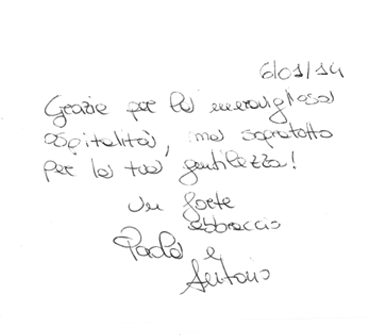 6/01/14
Grazie per la meravigliosa
ospitalità, ma sopratutto
per la tua gentilezza!
Un forte
abbraccio
Paola e
Antonio